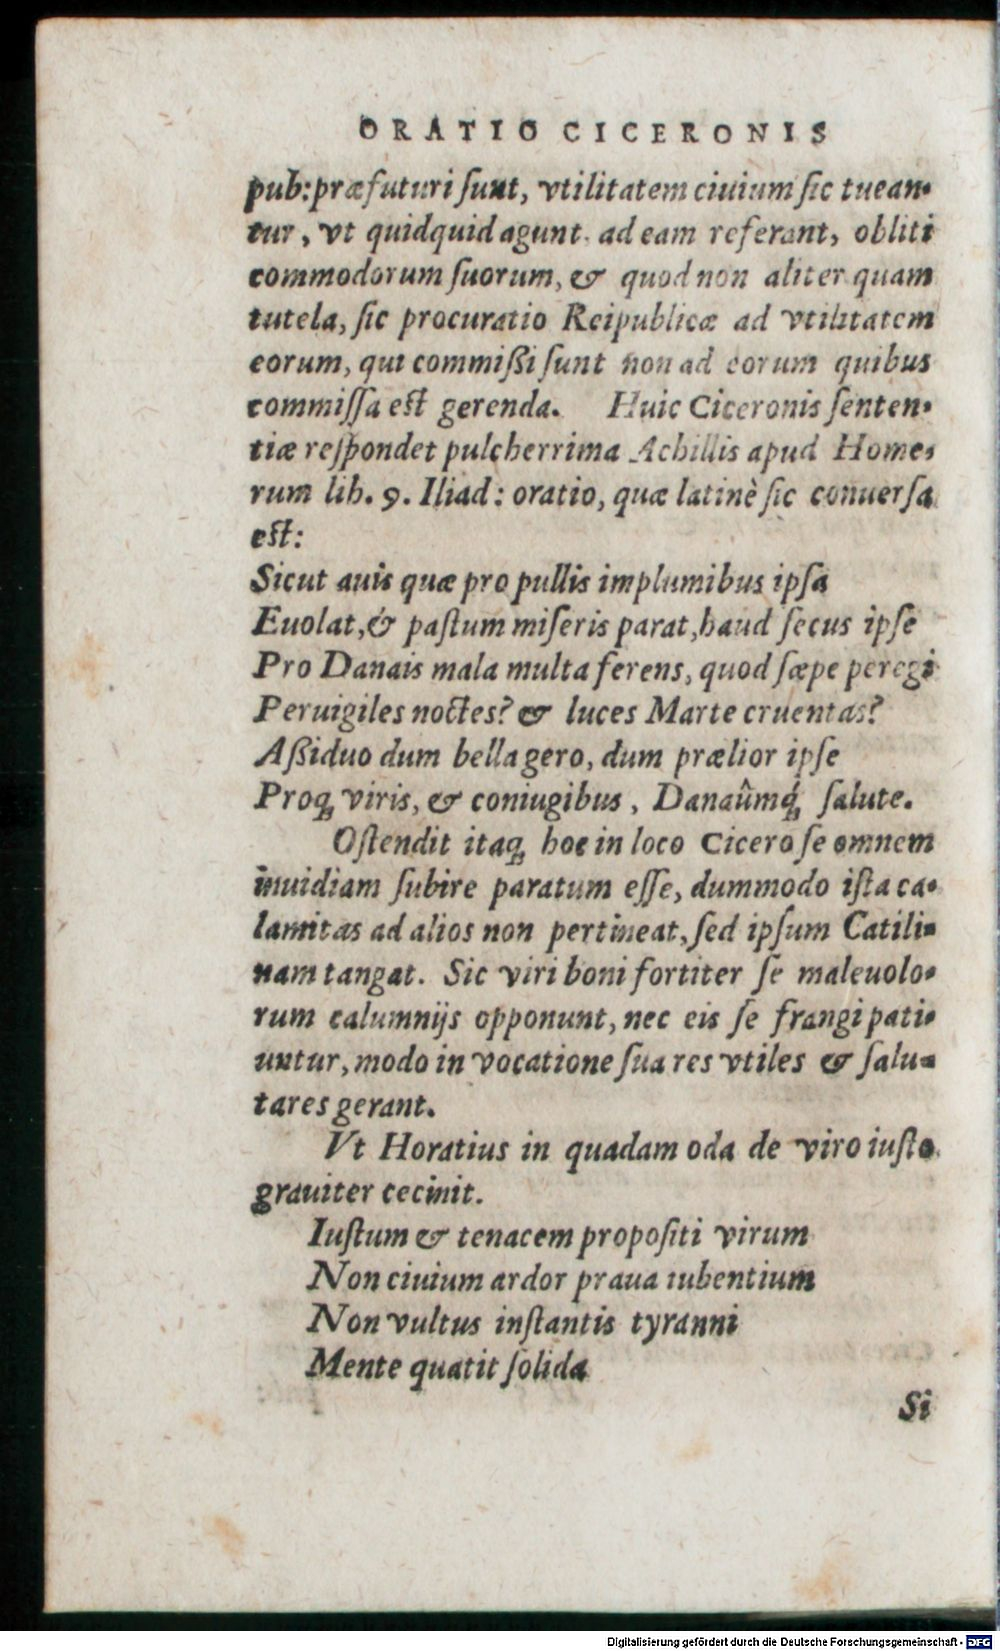 ORATIO CICERONIS
pub: præfuturi ſunt, vtilitatem ciuium ſic tuean-
tur, vt quidquid agunt. ad eam referant, obliti
commodorum ſuorum, & quod non aliter quam
tutela, ſic procuratio Reipublicæ ad vtilitatem
eorum, qui commißi ſunt non ad eorum quibus
commiſſa eſt gerenda. Huic Ciceronis ſenten-
tiæ reſpondet pulcherrima Achillis apud Home-
rum lib. 9. Iliad: oratio, quæ latinè ſic conuerſa
eſt:
Sicut auis quæ pro pullis implumibus ipſa
Euolat, & paſtum miſeris parat, haud ſecus ipſe
Pro Danais mala multa ferens, quod ſæpe peregi
Peruigiles noctes? & luces Marte cruentas?
Aßiduo dum bella gero, dum prælior ipſe
Proq́; viris, & coniugibus, Danaûmq́; ſalute.
Oſtendit itaq; hoc in loco Cicero ſe omnem
inuidiam ſubire paratum eſſe, dummodo iſta ca-
lamitas ad alios non pertineat, ſed ipſum Catili-
nam tangat. Sic viri boni fortiter ſe maleuolo-
rum calumnijs opponunt, nec eis ſe frangi pati-
untur, modo in vocatione ſua res vtiles & ſalu-
tares gerant.
Vt Horatius in quadam oda de viro iuſto
grauiter cecinit.
Iuſtum & tenacem propoſiti virum
Non ciuium ardor praua iubentium
Non vultus inſtantis tyranni
Mente quatit ſolida
Si
Digitalisierung gefördert durch die Deutsche Forschungsgemeinschaft - DFG